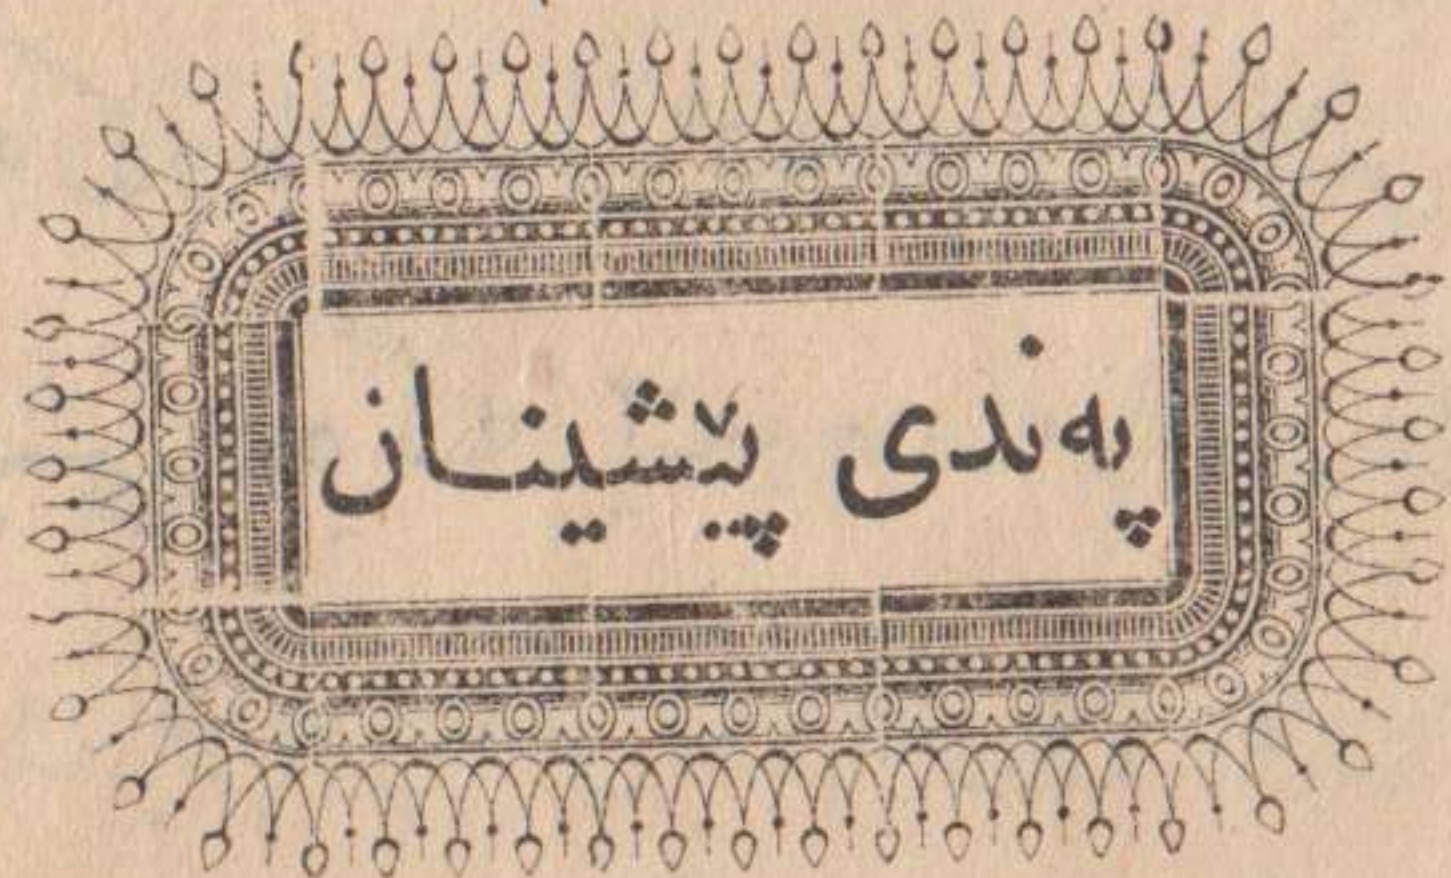 پەندی پێشینان